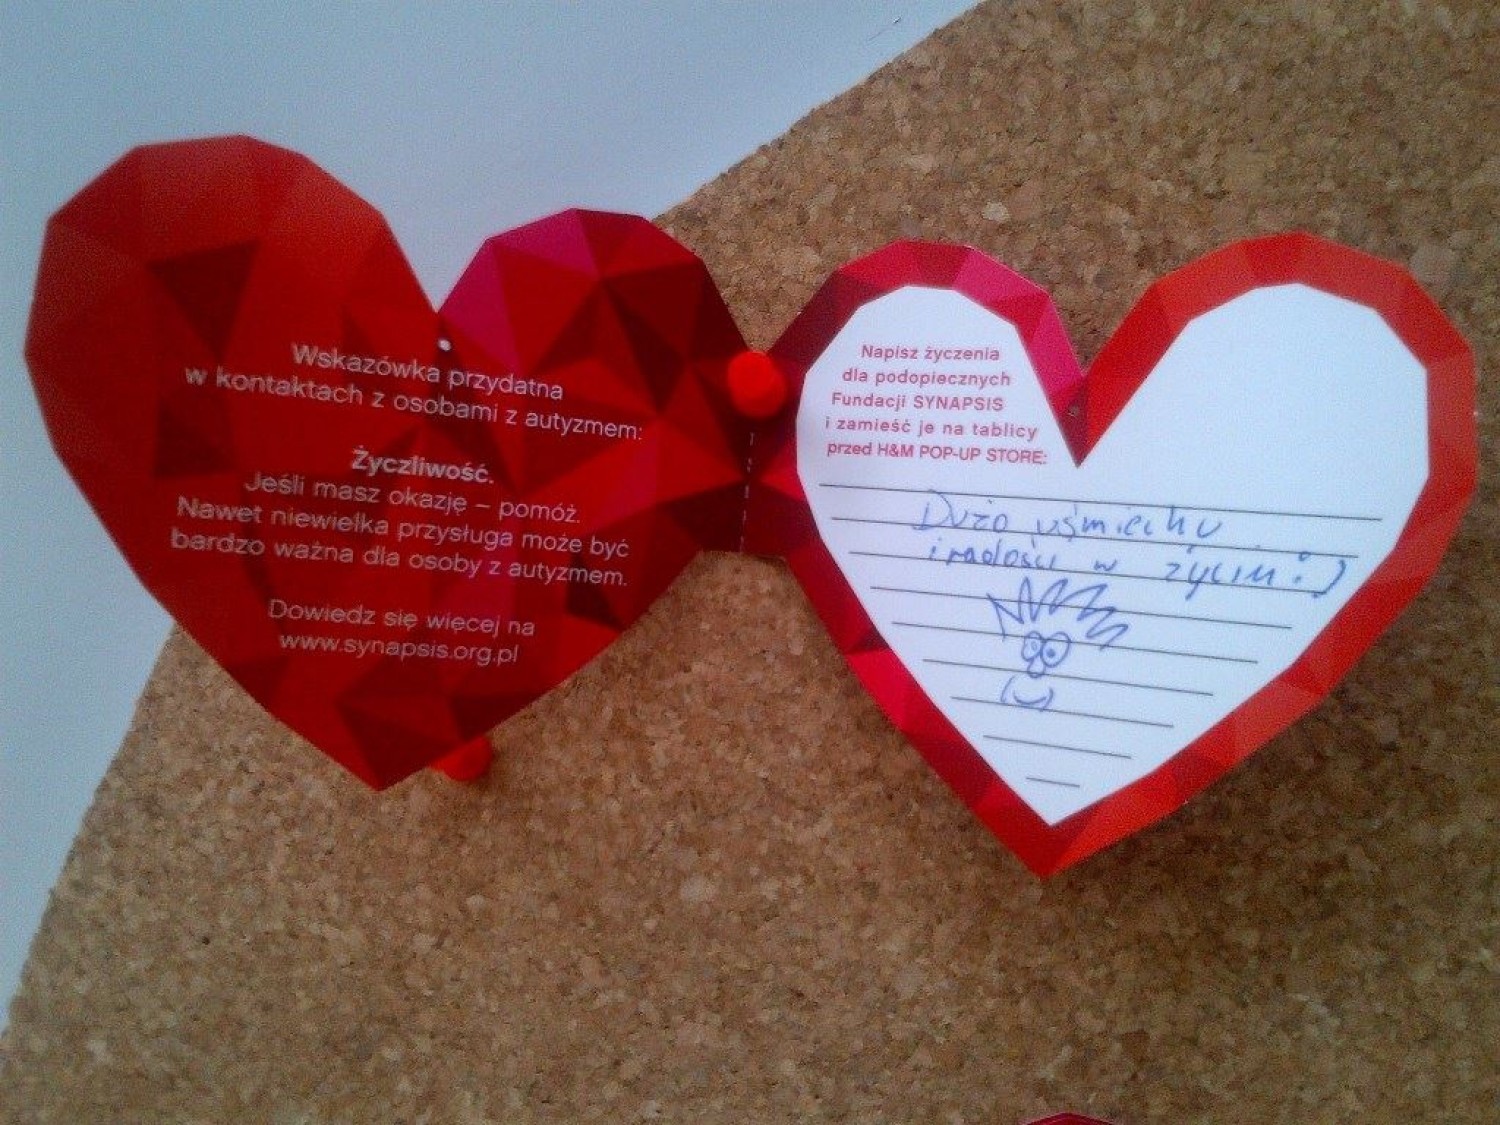 Wskazówka przydatna
w kontaktach z osobami z autyzmem:
Życzliwość.
Jeśli masz okazję – pomóż.
Nawet niewielka przysługa może być
bardzo ważna dla osoby z autyzmem.
Dowiedz się więcej na
www.synapsis.org.pl
Napisz życzenia
dla podopiecznych
Fundacji SYNAPSIS
i zamieść je na tablicy
przed H&M POP-UP STORE:
Dużo uśmiechu
i radości w życiu :)